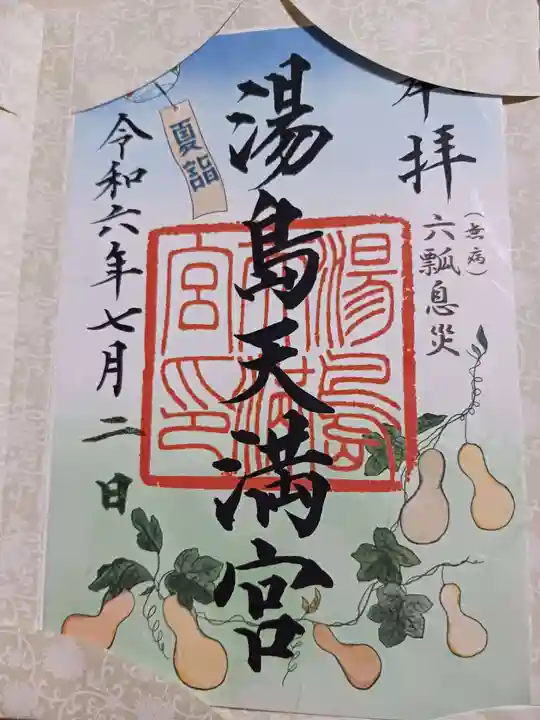 奉拝
(無病)
六瓢息災
湯島天満宮
湯島天満宮印
夏詣
令和六年七月二日